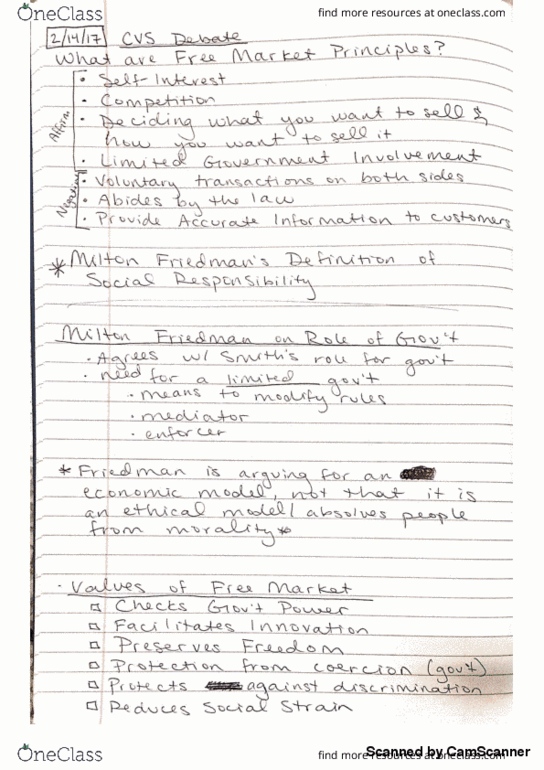 OneClass
find more resources at oneclass.com
2/14/17 CVS Debate
What are Free Market Principles?
Affirm
• Self-Interest
• Competition
• Deciding what you want to sell &
how you want to sell it
• Limited Government Involvement
Negation
• Voluntary transactions on both sides
• Abides by the law
• Provide Accurate Information to customers
* Milton Friedman's Definition of
Social Responsibility
Milton Friedman on Role of Gov't
• Agrees w/ Smith's role for gov't
• need for a limited gov't
• means to modify rules
• mediator
• enforcer
* Friedman is arguing for an
economic model, not that it is
an ethical model/absolves people
from morality*
• Values of Free Market
□ Checks Gov't Power
□ Facilitates Innovation
□ Preserves Freedom
□ Protection from coercion (gov't)
□ Protects against discrimination
□ Reduces Social Strain
OneClass
find more resources at oneclass.com
Scanned by CamScanner